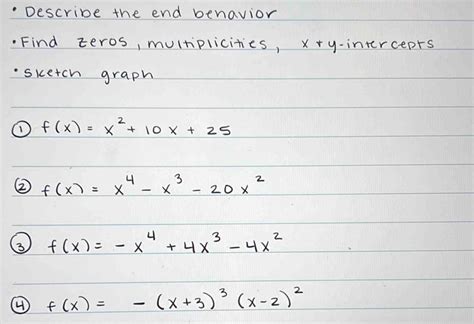 • Describe the end behavior
• Find zeros, multiplicities, x + y-intercepts
• sketch graph
① f(x) = x² + 10x + 25
② f(x) = x⁴ - x³ - 20x²
③ f(x) = -x⁴ + 4x³ - 4x²
④ f(x) = -(x+3)³ (x-2)²